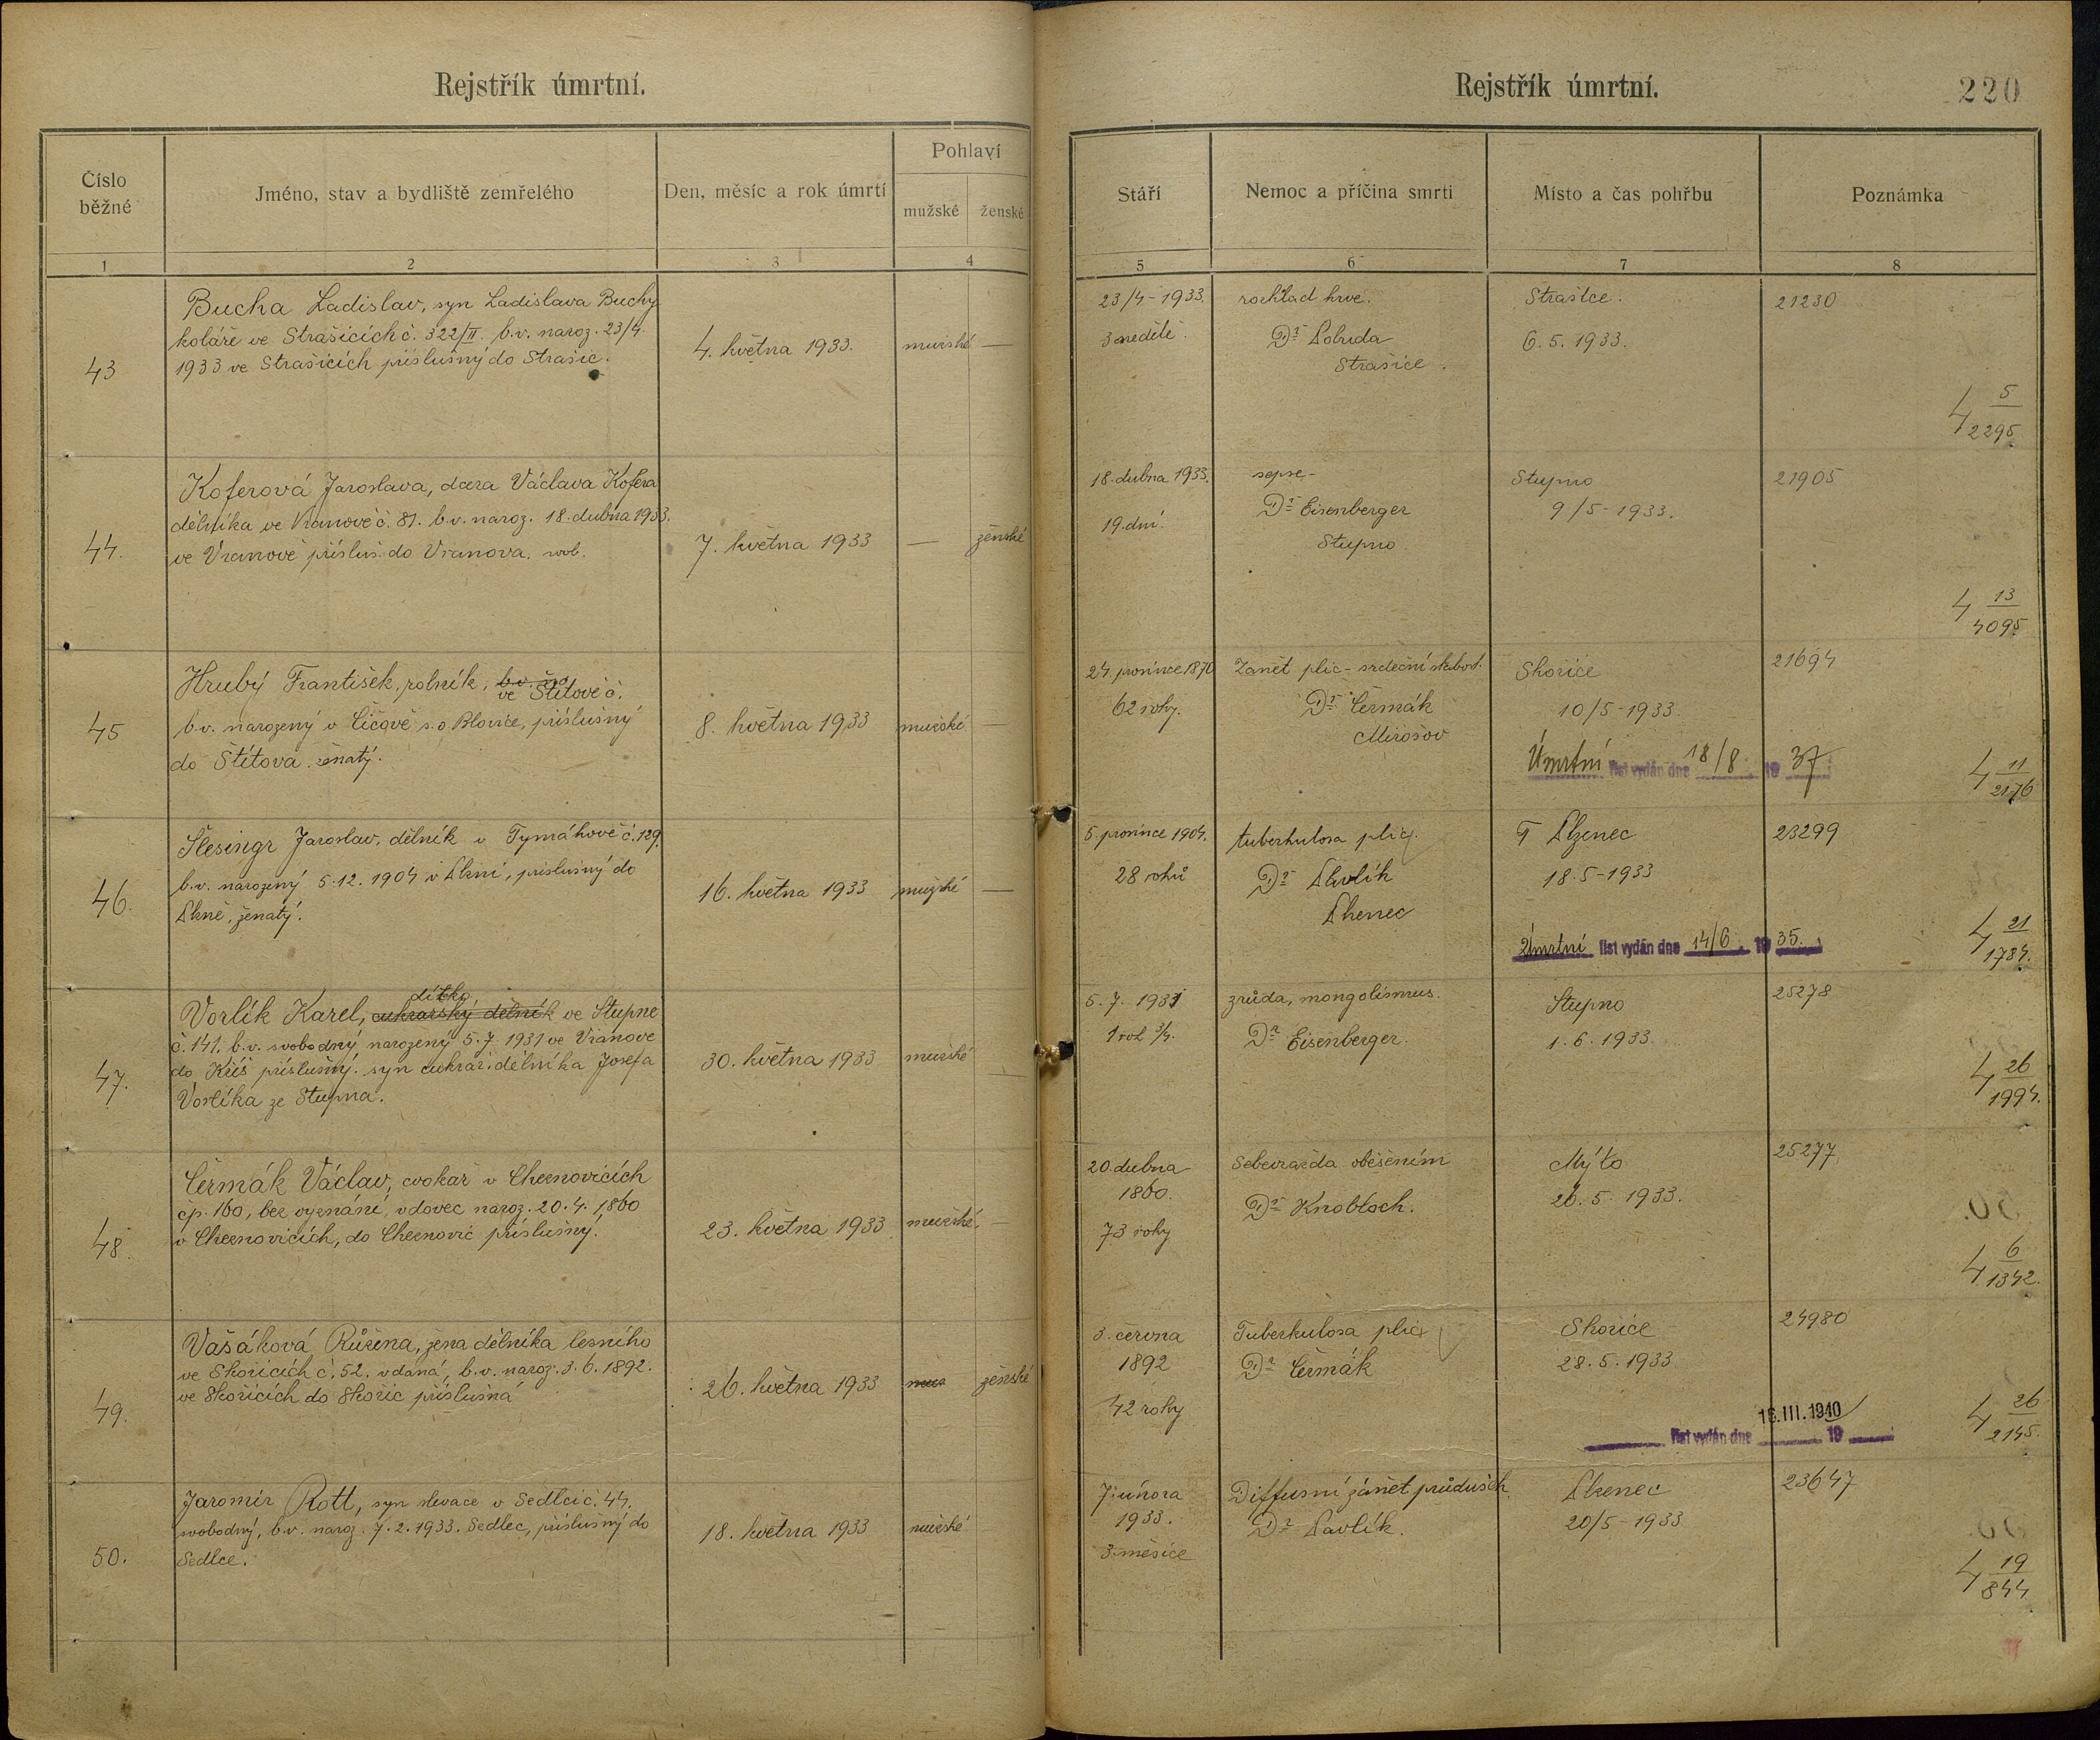 Rejstřík úmrtní.
Číslo běžné
Jméno, stav a bydliště zemřelého
Den, měsíc a rok úmrtí
Pohlaví
mužské
ženské
1
2
3
4
43
Bucha Ladislav, syn Ladislava Buchy
koláře ve Strašicích č. 322/II. b.v. naroz. 23/4.
1933 ve Strašicích příslušný do Strašic.
4. května 1933.
mužské —
44.
Koferová Jaroslava, dcera Václava Kofera
dělníka ve Vranově č. 81. b.v. naroz. 18. dubna 1933.
ve Vranově přísluš. do Vranova. svob.
7. května 1933
— ženské
45
Hrubý František, rolník, ve Štítově č.
b.v. narozený v Číčově s.o. Blovice, příslušný
do Štítova. ženatý.
8. května 1933
mužské —
46.
Šlesingr Jaroslav, dělník v Tymákově č. 129.
b.v. narozený 5.12. 1904 v Plzni, příslušný do
Plzně, ženatý.
16. května 1933
mužské —
47.
dítko
Vorlík Karel, cukrarský dělník ve Stupně
č. 141. b.v. svobodný narozený 5.7. 1931 ve Vranově
do Kříš příslušný. syn cukrář. dělníka Josefa
Vorlíka ze Stupna.
30. května 1933
mužské
48.
Čermák Václav, cvokař v Cheznovicích
čp. 160, bez vyznání, vdovec naroz. 20.4. 1860
v Cheznovicích, do Cheznovic příslušný.
23. května 1933
mužské. —
49.
Vašáková Růžena, žena dělníka lesního
ve Skořicích č. 52. vdaná, b.v. naroz. 3. 6. 1892.
ve Skořicích do Skořic příslušná
26. května 1933
ženské
50.
Jaromír Rott, syn slevače v Sedlci č. 44.
svobodný, b.v. naroz. 7. 2. 1933. Sedlec, příslušný do
Sedlce.
18. května 1933
mužské
Rejstřík úmrtní.
220
Stáří
Nemoc a příčina smrti
Místo a čas pohřbu
Poznámka
5
6
7
8
23/4 - 1933.
3 neděle.
rozklad krve.
Dr Pobuda
Strašice.
Strašice.
6. 5. 1933.
21230
4 5
2295.
18. dubna 1933.
19. dní.
sepse-
Dr Eisenberger
Stupno
Stupno
9/5 - 1933.
21905
4 13
4095.
24. prosince 1870
62 roky.
Zánět plic - srdeční slabost.
Dr Čermák
Mirošov
Skořice
10/5 - 1933.
Úmrtní list vydán dne 18/8 19 37
21694
4 11
2176
5. prosince 1904.
28 roků
tuberkulosa plic.
Dr Pavlík
Plzenec
Plzenec
18. 5 - 1933
Úmrtní list vydán dne 14/6 19 35.
23299
4 21
1784.
5. 7. 1931
1 rok 3/4.
zrůda, mongolismus.
Dr Eisenberger.
Stupno
1. 6. 1933.
25278
4 26
1994.
20. dubna
1860.
73 roky
Sebevražda oběšením
Dr Knobloch.
Mýto
26. 5. 1933.
25277
4 6
1342.
3. června
1892
42 roky
Tuberkulosa plic
Dr Čermák
Skořice
28. 5. 1933
list vydán dne 16. III. 1940 19
24980
4 26
2145.
7. února
1933.
3. měsíce
Diffusní zánět průdušek
Dr Pavlík.
Plzenec
20/5 - 1933
23647
4 19
844